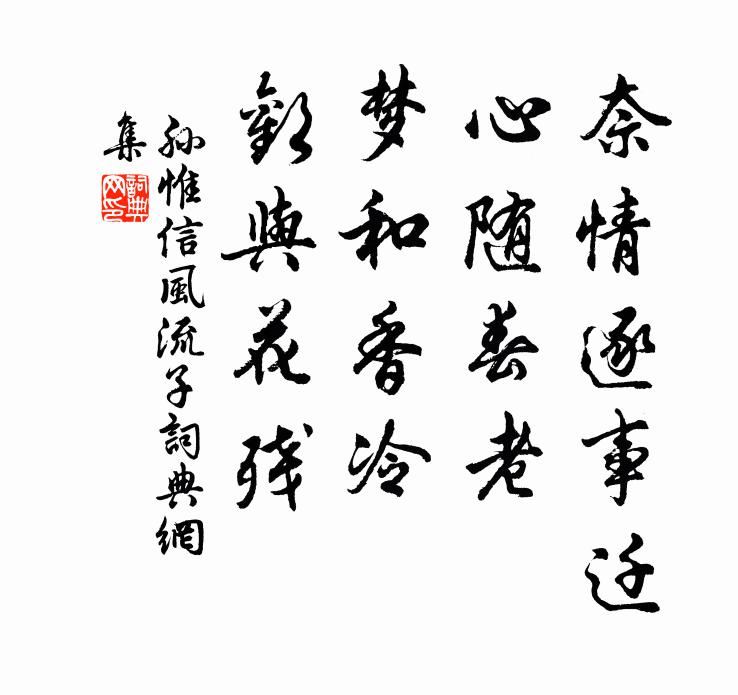 奈情逐事迁
心随春老
梦和香冷
歡與花残
孙惟信風流子詞典網
集
詞典
网印